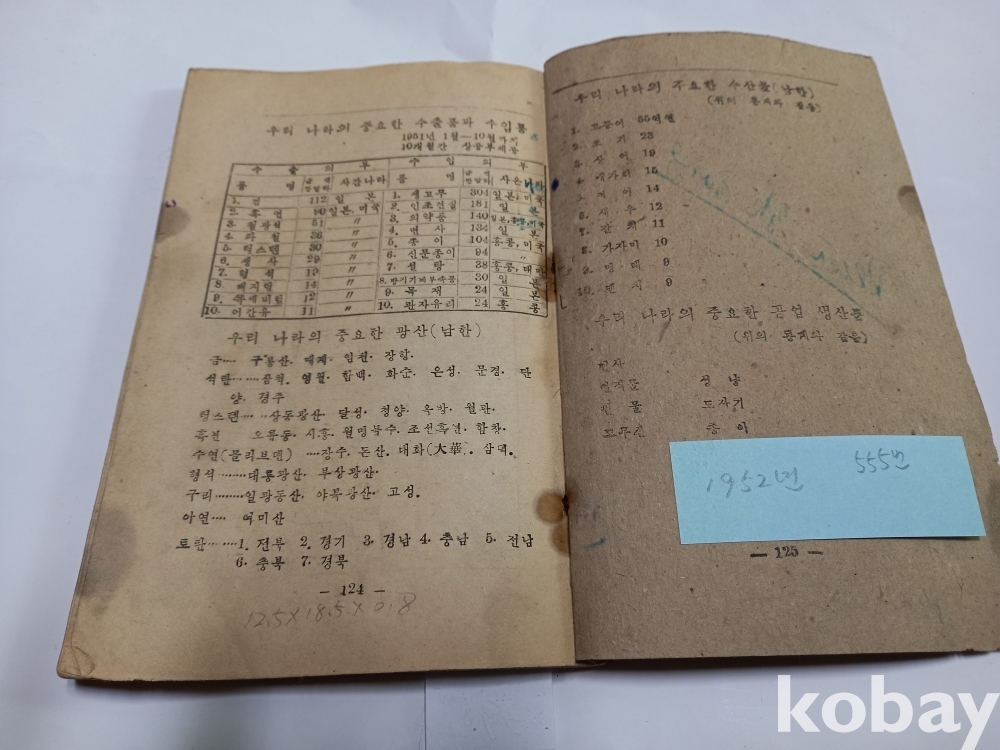 우리 나라의 중요한 수출품과 수입품
1951년 1월—10월까지
10개월간 상공부
수 출 의 부 수 입 의 부
품 명 사간나라 품 명 사온나라
112 일 본 1. 생고무 304 일본, 미국
2. 흑 연 90 일본, 미국 2. 인조견실 181 일 본
3. 51 〃 3. 의약품 140
36 〃 4. 면 사 134 일 본
5. 텅스텐 30 〃 5. 종 이 104 홍콩, 미국
6. 생 사 29 〃 6. 신문종이 94 〃
7. 형 석 〃 7. 설 탕 38 홍콩, 대만
8. 돼지털 14 〃 8. 30 일 본
9. 12 〃 9. 목 재 24 일 본
10. 어간유 11 〃 10. 판자유리 24 홍 콩
우리 나라의 중요한 광산(남한)
금···· 구룡산. 임천. 장항.
석탄 영월. 함백. 화순. 은성. 문경. 단
양. 경주
텅스텐 상동광산. 달성. 청양. 옥방. 월악.
흑연 시흥. 월명특수. 조선흑연. 함창.
수연(몰리브덴) ····장수. 돈산. 대화(大華). 삼덕.
형석 ·······대룡광산. 부상광산.
구리········일광동산. 고성.
아연···· 여미산
토탄·· ····1. 전북 2. 경기 3. 경남 4. 충남 5. 전남
6. 충북 7. 경북
— 124 —
12.5×18.5×0.8
우리 나라의 주요한 수산물(남한)
(위의 통계와 같음)
1. 고등어 65억원
2. 조 기 23
3. 상 어 19
4. 15
5. 14
6. 새 우 12
7. 갈 치 11
8. 가자미 10
9. 명 태 9
10. 멸 치 9
우리 나라의 중요한 공업 생산품
(위의 통계와 같음)
면사
성 냥
도자기
고무신 종 이
1952년 555번
— 125 —
kobay